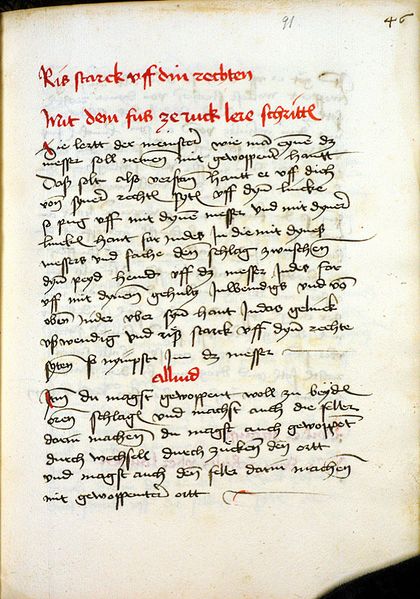 91
46
Ris starck uff din rechten
Mit dem fus ze ruck lere schrittl
Hie lertt der meinster wie ma eyne dz
messer soll nemen mit gewopenter hantt
Das solt also versten hautt er uff dich
von syner rechtn sytn uff dyn lincke
so ring uff mit dyne messer und mit dyner
lincken hant far indes in die mit dynes
messers und fache den schlag zwuschen
dyn peyd hende uff dz messer Indes far
uff mit dynen gehultz Inwendigs und vo
oben nider uber syn hant Indas geluck
ußwendig und riß starck uff dyn rechte
syten so nympst im dz messer
Alliud
Itm du magst gewoppent woll zu beyde
oren schlage und machst auch die feller
darin machen du magst auch gewoppet
durch wechsell durch zucken den ortt
und magst auch den feller darin machen
mit gewoppenter ortt